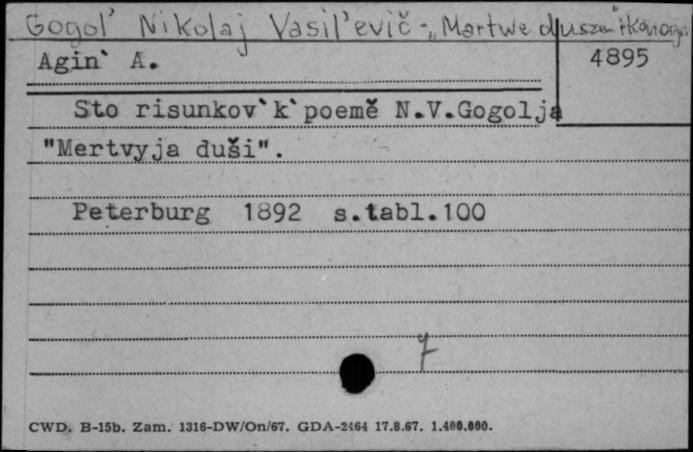 Gogol' Nikolaj Vasil'evič - „Martwe dusze" ikonogr.
Agin` A.
4895
Sto risunkov`k`poemě N.V.Gogolja
"Mertvyja duši".
Peterburg 1892 s.tabl.100
7
CWD. B-15b. Zam. 1316-DW/On/67. GDA-2464 17.8.67. 1.400.000.